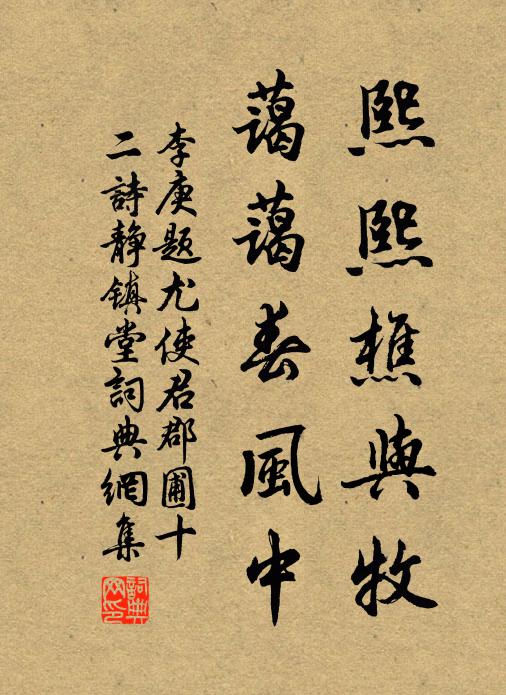 熙熙樵與牧
藹藹春風中
李庚題尤使君郡圃十
二詩靜鎮堂詞典網集
詞典网印